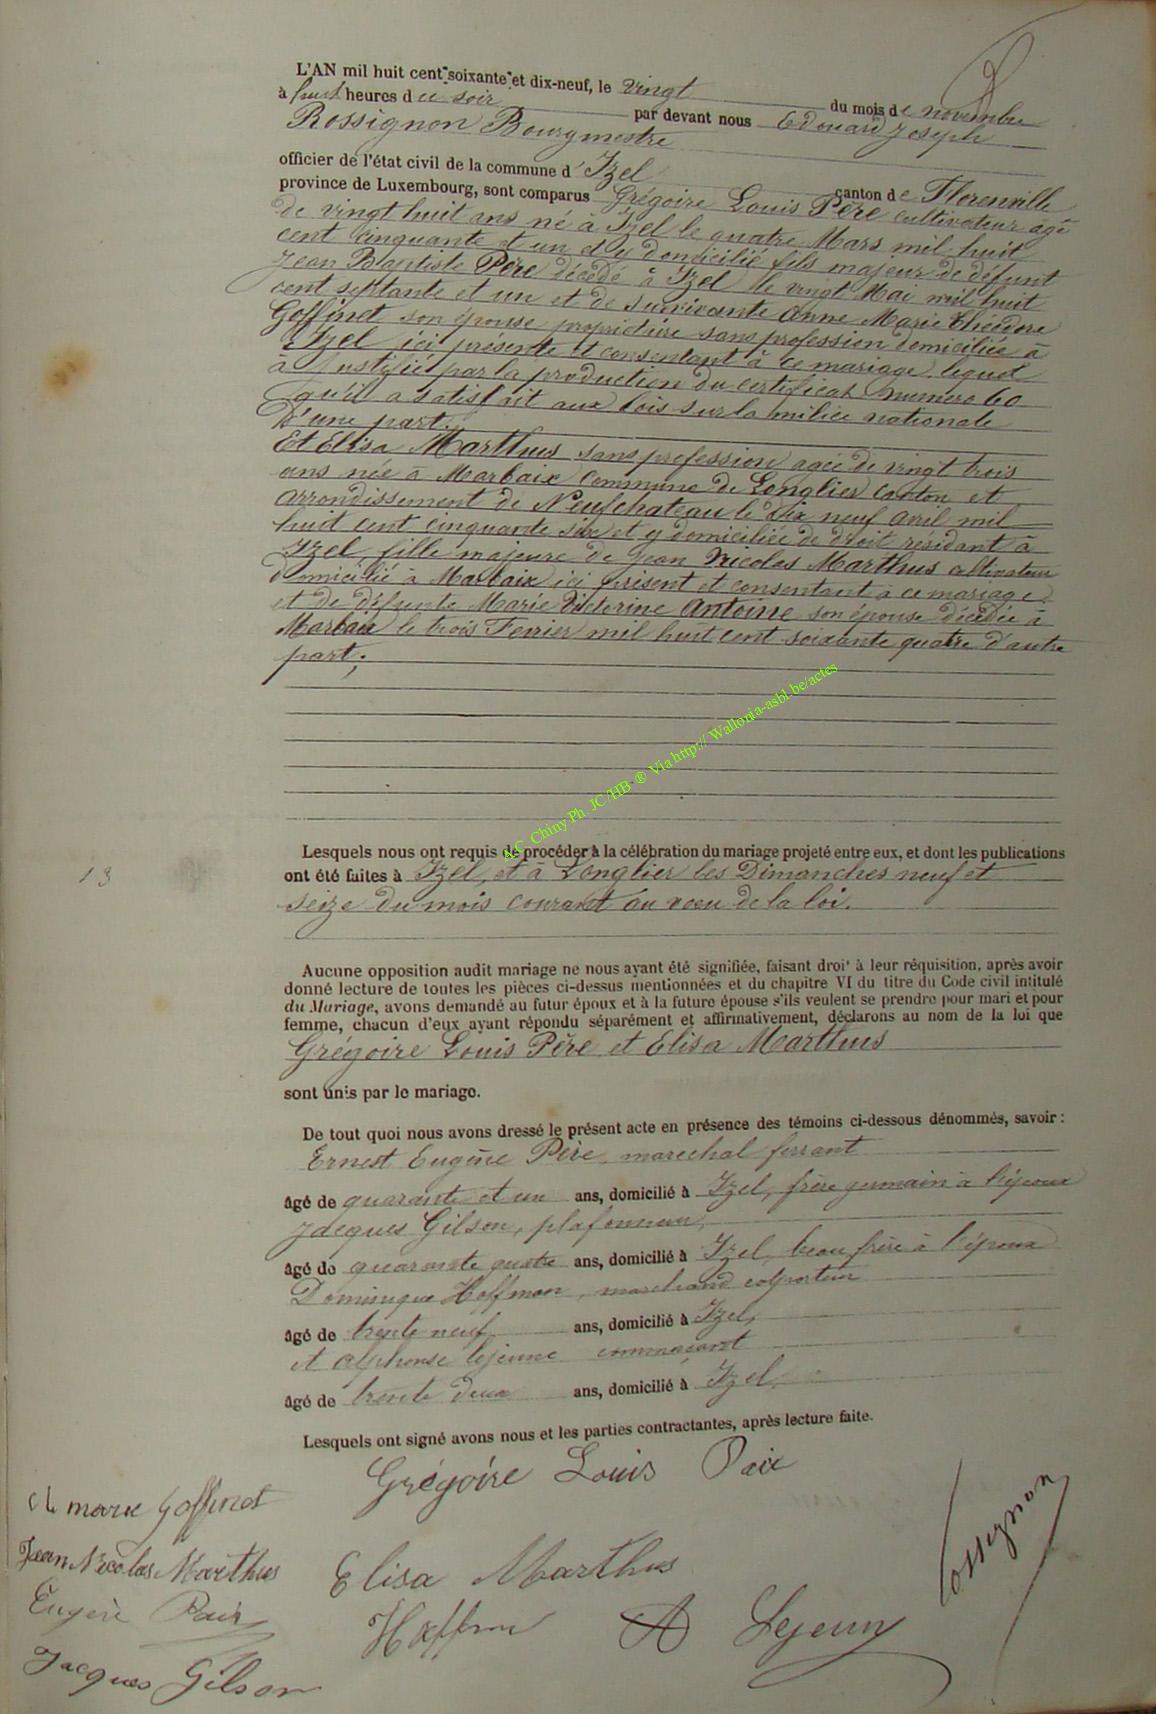 L'AN mil huit cent soixante et dix-neuf, le vingt du mois de novembre
à huit heures du soir par devant nous Edouard Joseph
Rossignon Bourgmestre
officier de l'état civil de la commune d'Izel canton de Florenville
province de Luxembourg, sont comparus Grégoire Louis Père cultivateur agé
de vingt huit ans né à Izel le quatre Mars mil huit
cent cinquante et un et y domicilié fils majeur de défunt
Jean Baptiste Père décédé à Izel le vingt Mai mil huit
cent septante et un et de survivante Anne Marie Théodore
Goffinet son épouse propriétaire sans profession domiciliée à
Izel ici présente et consentant à ce mariage lequel
à justifié par la production du certificat numero 60
qu'il a satisfait aux lois sur la milice nationale
D'une part.
Et Elisa Marthus sans profession agée de vingt trois
ans née à Marbaix commune de Longlier canton et
arrondissement de Neufchateau le dix neuf avril mil
huit cent cinquante six et y domiciliée de droit résidant à
Izel, fille majeure de Jean Nicolas Marthus cultivateur
domicilié à Marbaix ici présent et consentant à ce mariage
et de défunte Marie Victorine Antoine son épouse décédée à
Marbaix le trois Fevrier mil huit cent soixante quatre d'autre
part;
A.C. Chiny Ph. JC/HB ® Via http:// Wallonia-asbl.be/actes
Lesquels nous ont requis de procéder à la célébration du mariage projeté entre eux, et dont les publications
13
ont été faites à Izel, et à Longlier les Dimanches neuf et
seize du mois courant au voeu de la loi.
Aucune opposition audit mariage ne nous ayant été signifiée, faisant droit à leur réquisition, après avoir
donné lecture de toutes les pièces ci-dessus mentionnées et du chapitre VI du titre du Code civil intitulé
du Mariage, avons demandé au futur époux et à la future épouse s'ils veulent se prendre pour mari et pour
femme, chacun d'eux ayant répondu séparément et affirmativement, déclarons au nom de la loi que
Grégoire Louis Père et Elisa Marthus
sont unis par le mariage.
De tout quoi nous avons dressé le présent acte en présence des témoins ci-dessous dénommés, savoir :
Ernest Eugène Père, marechal ferrant
âgé de quarante et un ans, domicilié à Izel, frère germain à l'époux
Jacques Gilson, plafonneur,
âgé de quarante quatre ans, domicilié à Izel, beau frère à l'époux
Dominique Hoffman, marchand colporteur
âgé de trente neuf ans, domicilié à Izel,
et alphonse lejeune commerçant
âgé de trente deux ans, domicilié à Izel,
Lesquels ont signé avons nous et les parties contractantes, après lecture faite.
Grégoire Louis Paix
marie Goffinet
Jean Nicolas Marthus
Elisa Marthus
Rossignon
Eugène Paix
Hoffman
A Lejeune
Jacques Gilson